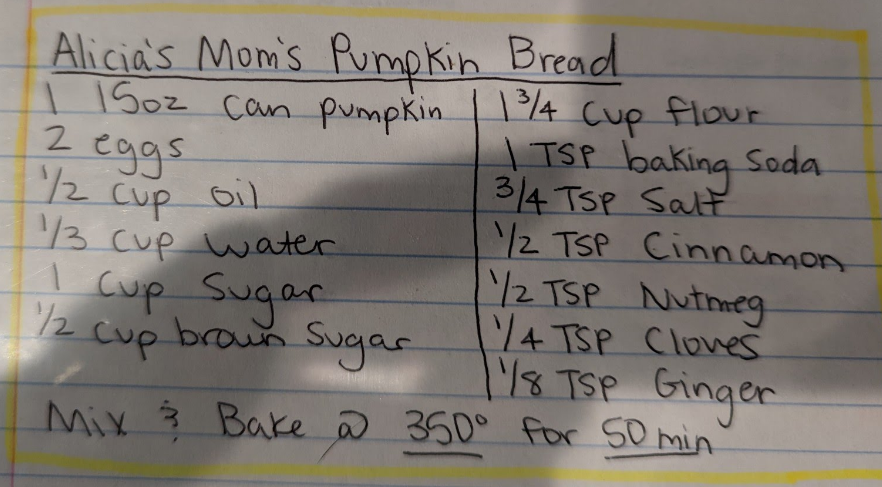 Alicia's Mom's Pumpkin Bread
1 15oz can pumpkin
2 eggs
1/2 cup oil
1/3 cup water
1 cup sugar
1/2 cup brown sugar
1 3/4 cup flour
1 TSP baking soda
3/4 TSP Salt
1/2 TSP Cinnamon
1/2 TSP Nutmeg
1/4 TSP Cloves
1/8 TSP Ginger
Mix & Bake @ 350° for 50 min